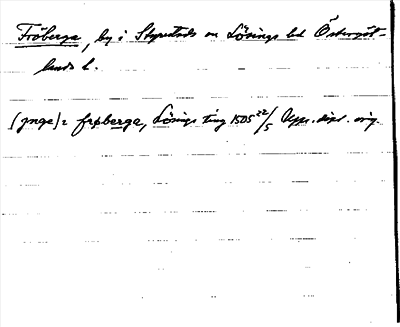 Fröberga, by i Styrstads sn Lösings hd Östergöt-
lands l.
(jnge)z frøberga, Lösings ting 1505 22/5 Ups. dipl. orig.